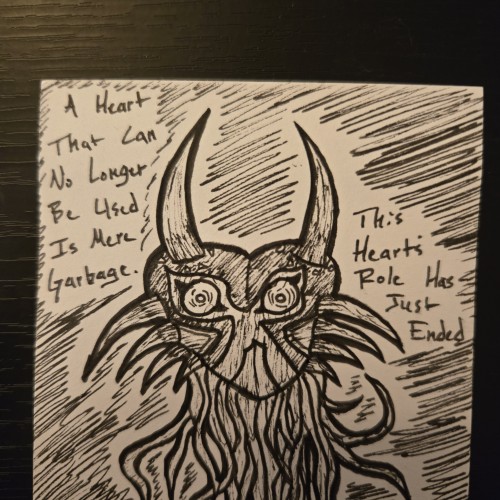 A Heart
That Can
No Longer
Be Used
Is Mere
Garbage.
This
Heart's
Role Has
Just
Ended